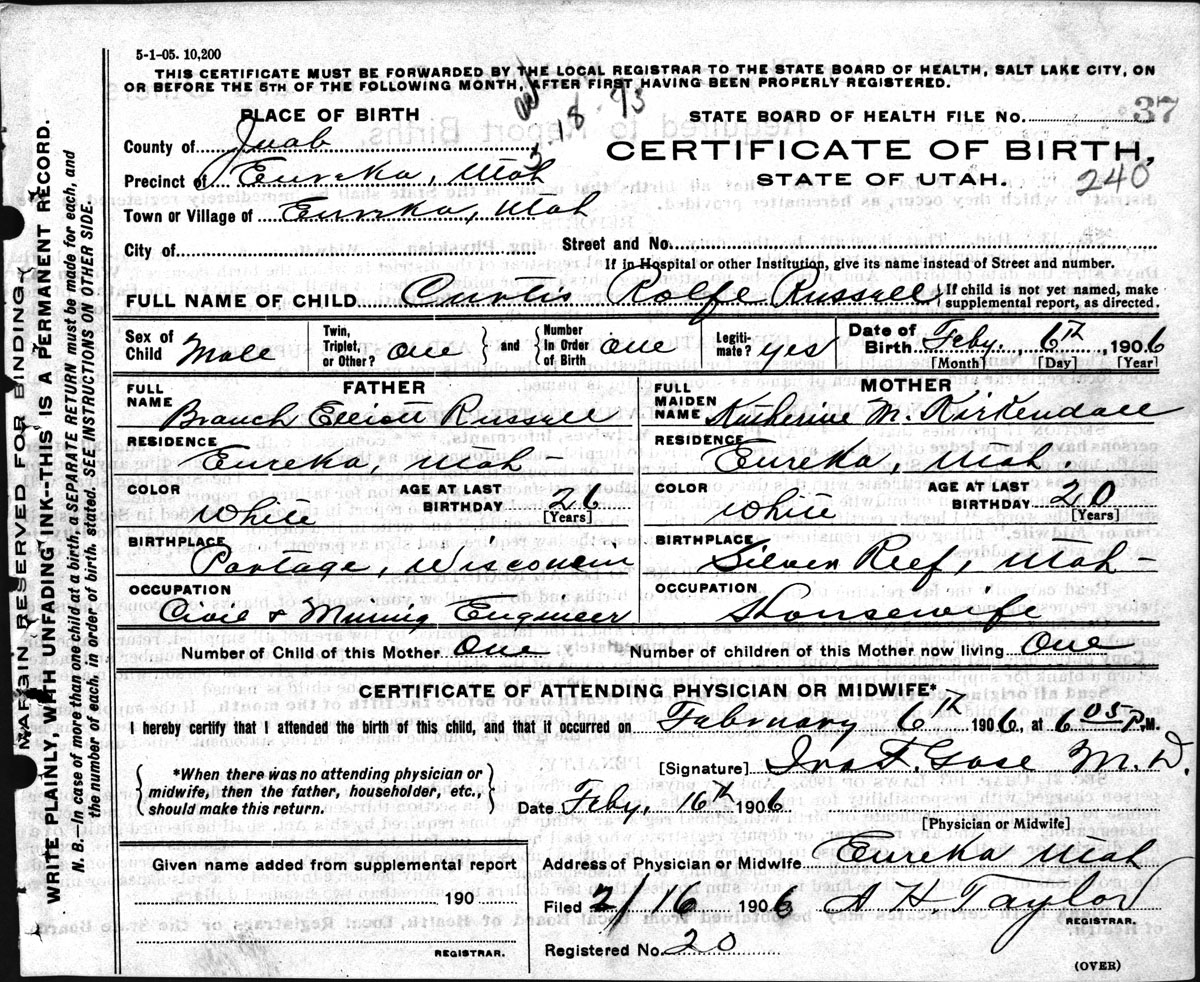 5-1-05. 10,200
THIS CERTIFICATE MUST BE FORWARDED BY THE LOCAL REGISTRAR TO THE STATE BOARD OF HEALTH, SALT LAKE CITY, ON
OR BEFORE THE 5TH OF THE FOLLOWING MONTH, AFTER FIRST HAVING BEEN PROPERLY REGISTERED.
3.18.93
PLACE OF BIRTH
STATE BOARD OF HEALTH FILE NO. 37
County of Juab
CERTIFICATE OF BIRTH,
Precinct of Eureka, Utah
STATE OF UTAH.
240
Town or Village of Eureka, Utah
City of Street and No.
If in Hospital or other Institution, give its name instead of Street and number.
FULL NAME OF CHILD Curtis Rolfe Russell { If child is not yet named, make
supplemental report, as directed.
Sex of Child Male Twin, Triplet, or Other? one } and { Number In Order of Birth one Legiti-mate? yes Date of Birth Feby. 6th, 1906
[Month] [Day] [Year]
FATHER MOTHER
FULL NAME Branch Elliott Russell FULL MAIDEN NAME Katherine M. Kirkendall
RESIDENCE RESIDENCE
Eureka, Utah - Eureka, Utah.
COLOR White AGE AT LAST BIRTHDAY 26 [Years] COLOR White AGE AT LAST BIRTHDAY 20 [Years]
BIRTHPLACE BIRTHPLACE
Portage, Wisconsin Silver Reef, Utah -
OCCUPATION OCCUPATION
Civil & Mining Engineer Housewife
Number of Child of this Mother One Number of children of this Mother now living One
CERTIFICATE OF ATTENDING PHYSICIAN OR MIDWIFE*
I hereby certify that I attended the birth of this child, and that it occurred on February 6th 1906, at 6 05 P.M.
{ *When there was no attending physician or
midwife, then the father, householder, etc.,
should make this return. }
[Signature] M.D.
Date Feby. 16th 1906
[Physician or Midwife]
Given name added from supplemental report
190
REGISTRAR.
Address of Physician or Midwife Eureka Utah
Filed 2/16 1906 A H Taylor
REGISTRAR.
Registered No. 20
(OVER)
MARGIN RESERVED FOR BINDING
WRITE PLAINLY, WITH UNFADING INK--THIS IS A PERMANENT RECORD.
N. B.--In case of more than one child at a birth, a SEPARATE RETURN must be made for each, and
the number of each, in order of birth, stated. SEE INSTRUCTIONS ON OTHER SIDE.